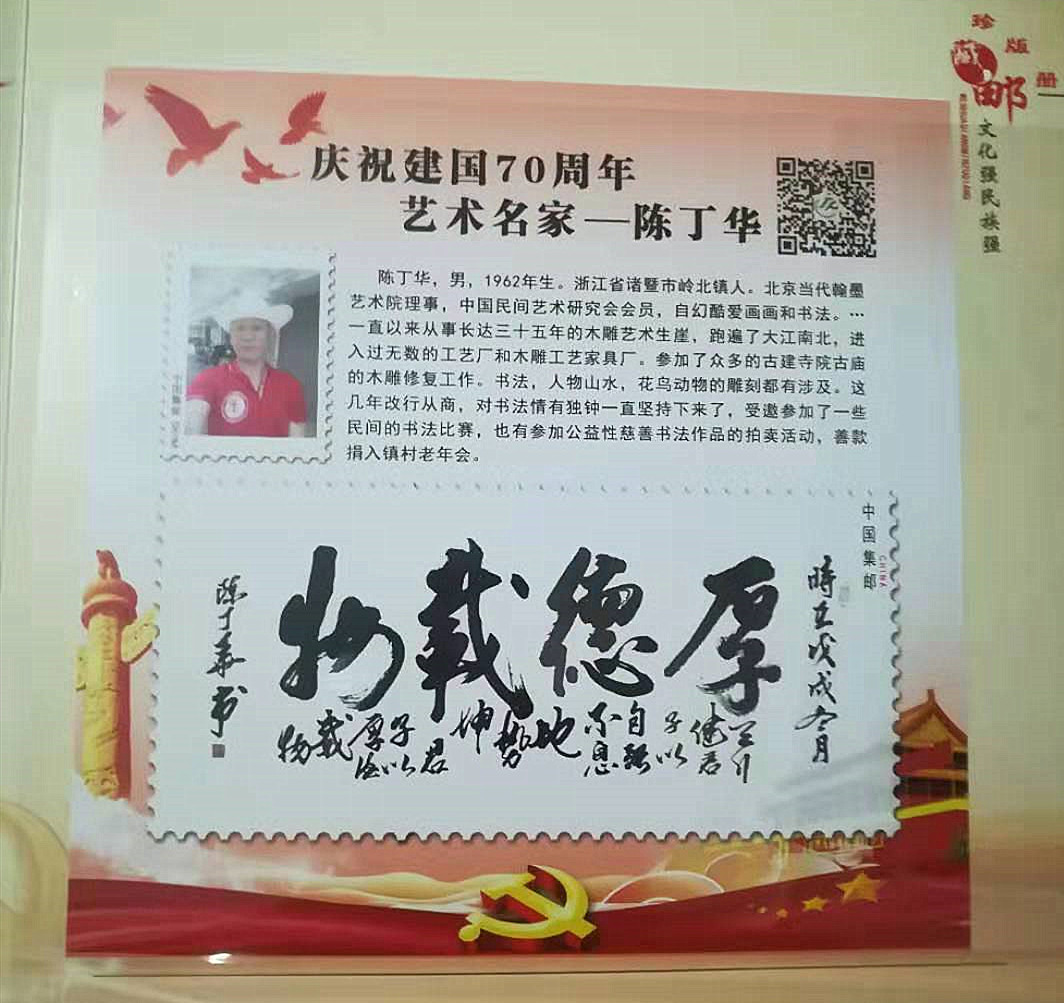 珍
藏
版
册
邮
文化强民族强
庆祝建国70周年
艺术名家—陈丁华
陈丁华，男，1962年生。浙江省诸暨市岭北镇人。北京当代翰墨
艺术院理事，中国民间艺术研究会会员，自幻酷爱画画和书法。…
一直以来从事长达三十五年的木雕艺术生崖，跑遍了大江南北，进
入过无数的工艺厂和木雕工艺家具厂。参加了众多的古建寺院古庙
的木雕修复工作。书法，人物山水，花鸟动物的雕刻都有涉及。这
几年改行从商，对书法情有独钟一直坚持下来了，受邀参加了一些
民间的书法比赛，也有参加公益性慈善书法作品的拍卖活动，善款
捐入镇村老年会。
中国集邮
CHINA
時在戊戌冬月
厚德載物
天行
健君
子以
自强
不息
地
势
坤
君
子以
厚德
載
物
陈丁华书